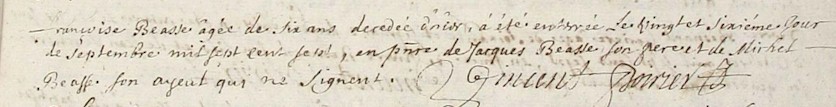 rancoise Beasse âgée de Six ans decedée d'hier, a été enterrée Le vingt et Sixième Jour
de Septembre mil sept cent sept, en pnce de Jacques Beasse son pere et de Michel
Beasse son ayeul qui ne Signent. Vincent Poirier